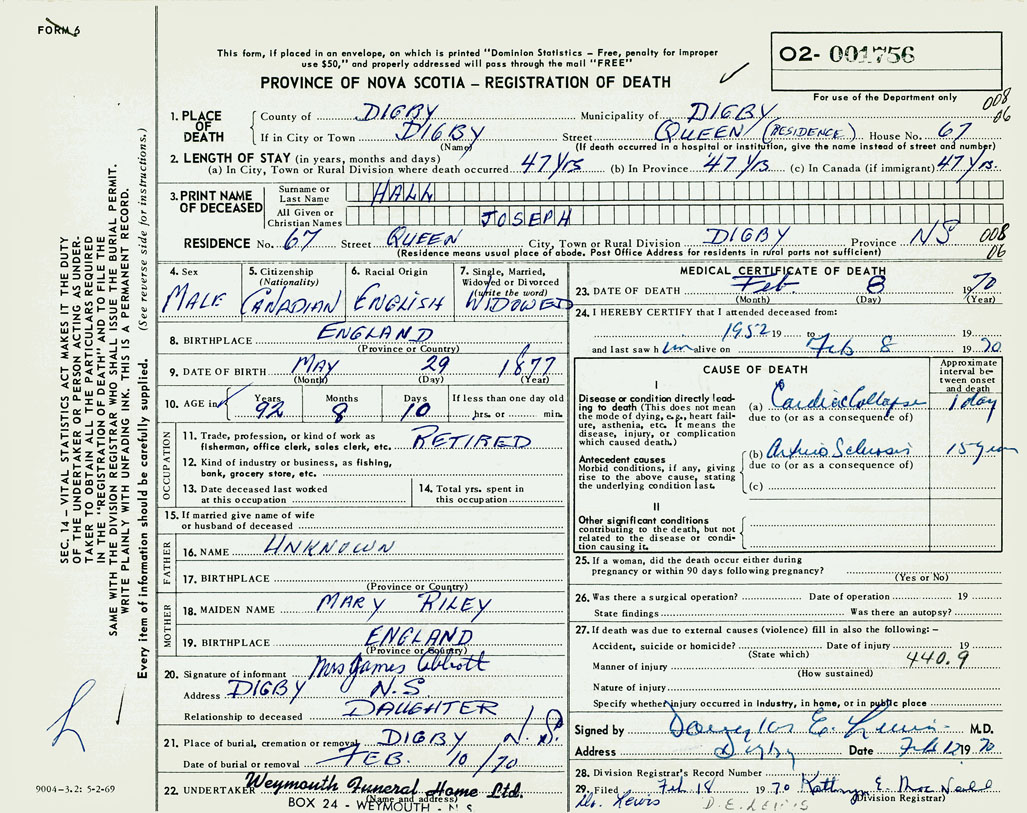 FORM 6
This form, if placed in an envelope, on which is printed "Dominion Statistics – Free, penalty for improper
use $50," and properly addressed will pass through the mail "FREE"
PROVINCE OF NOVA SCOTIA – REGISTRATION OF DEATH
O2- 001756
For use of the Department only
008
06
1. PLACE OF DEATH
County of DIGBY Municipality of DIGBY
If in City or Town DIGBY Street QUEEN (RESIDENCE) House No. 67
(Name) (If death occurred in a hospital or institution, give the name instead of street and number)
2. LENGTH OF STAY (in years, months and days)
(a) In City, Town or Rural Division where death occurred 47 Yrs (b) In Province 47 Yrs. (c) In Canada (if immigrant) 47 Yrs.
3. PRINT NAME OF DECEASED
Surname or Last Name HALL
All Given or Christian Names JOSEPH
RESIDENCE No. 67 Street QUEEN City, Town or Rural Division DIGBY Province NS
008
06
(Residence means usual place of abode. Post Office Address for residents in rural parts not sufficient)
4. Sex
MALE
5. Citizenship
(Nationality)
CANADIAN
6. Racial Origin
ENGLISH
7. Single, Married,
Widowed or Divorced
(write the word)
WIDOWED
8. BIRTHPLACE ENGLAND
(Province or Country)
9. DATE OF BIRTH MAY 29 1877
(Month) (Day) (Year)
10. AGE in Years Months Days If less than one day
92 8 10 hrs. or min.
OCCUPATION
11. Trade, profession, or kind of work as
fisherman, office clerk, sales clerk, etc. RETIRED
12. Kind of industry or business, as fishing,
bank, grocery store, etc.
13. Date deceased last worked
at this occupation
14. Total yrs. spent in
this occupation
15. If married give name of wife
or husband of deceased
FATHER
16. NAME UNKNOWN
17. BIRTHPLACE
(Province or Country)
MOTHER
18. MAIDEN NAME MARY RILEY
19. BIRTHPLACE ENGLAND
(Province or Country)
20. Signature of informant Mrs James Abbott
Address DIGBY N.S.
Relationship to deceased DAUGHTER
21. Place of burial, cremation or removal DIGBY N.S.
Date of burial or removal FEB. 10/70
22. UNDERTAKER Weymouth Funeral Home Ltd.
(Name and address)
BOX 24 - WEYMOUTH - N S
MEDICAL CERTIFICATE OF DEATH
23. DATE OF DEATH Feb 8 1970
(Month) (Day) (Year)
24. I HEREBY CERTIFY that I attended deceased from:
1952 19 to 19
and last saw him alive on Feb 8 1970
CAUSE OF DEATH
Approximate
interval be-
tween onset
and death
I
Disease or condition directly lead-
ing to death (This does not mean
the mode of dying, e.g., heart fail-
ure, asthenia, etc. It means the
disease, injury, or complication
which caused death.)
(a) Cardiac Collapse 1 day
due to (or as a consequence of)
Antecedent causes
Morbid conditions, if any, giving
rise to the above cause, stating
the underlying condition last.
(b) Arterio Sclerosis 15 years
due to (or as a consequence of)
(c)
II
Other significant conditions
contributing to the death, but not
related to the disease or condi-
tion causing it.
25. If a woman, did the death occur either during
pregnancy or within 90 days following pregnancy?
(Yes or No)
26. Was there a surgical operation? Date of operation 19
State findings Was there an autopsy?
27. If death was due to external causes (violence) fill in also the following: –
Accident, suicide or homicide? Date of injury 19
(State which)
440.9
Manner of injury
(How sustained)
Nature of injury
Specify whether injury occurred in industry, in home, or in public place
Signed by Douglas E. Lewis M.D.
Address Digby Date Feb 12 1970
28. Division Registrar's Record Number
29. Filed Feb 18 1970 Kathryn E. MacNeill
(Division Registrar)
Dr. Lewis D.E. LEWIS
SEC. 14 – VITAL STATISTICS ACT MAKES IT THE DUTY
OF THE UNDERTAKER OR PERSON ACTING AS UNDER-
TAKER TO OBTAIN ALL THE PARTICULARS REQUIRED
IN THE "REGISTRATION OF DEATH" AND TO FILE THE
SAME WITH THE DIVISION REGISTRAR WHO SHALL ISSUE THE BURIAL PERMIT.
WRITE PLAINLY WITH UNFADING INK. THIS IS A PERMANENT RECORD.
Every item of information should be carefully supplied. (See reverse side for instructions.)
9004–3.2: 5-2-69